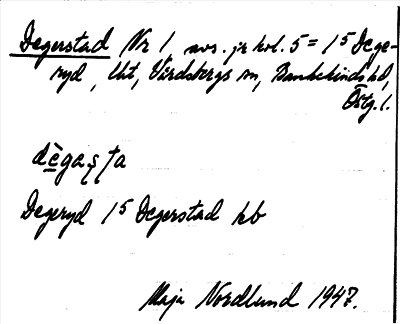 Degerstad Nr 1, avs. jr kol. 5 = 1⁵ Dege-
ryd, Utt, Vårdsbergs sn, Bankekinds hd,
Östg. l.
dègaşta
Degeryd 1⁵ Degerstad hb
Maja Nordlund 1947.